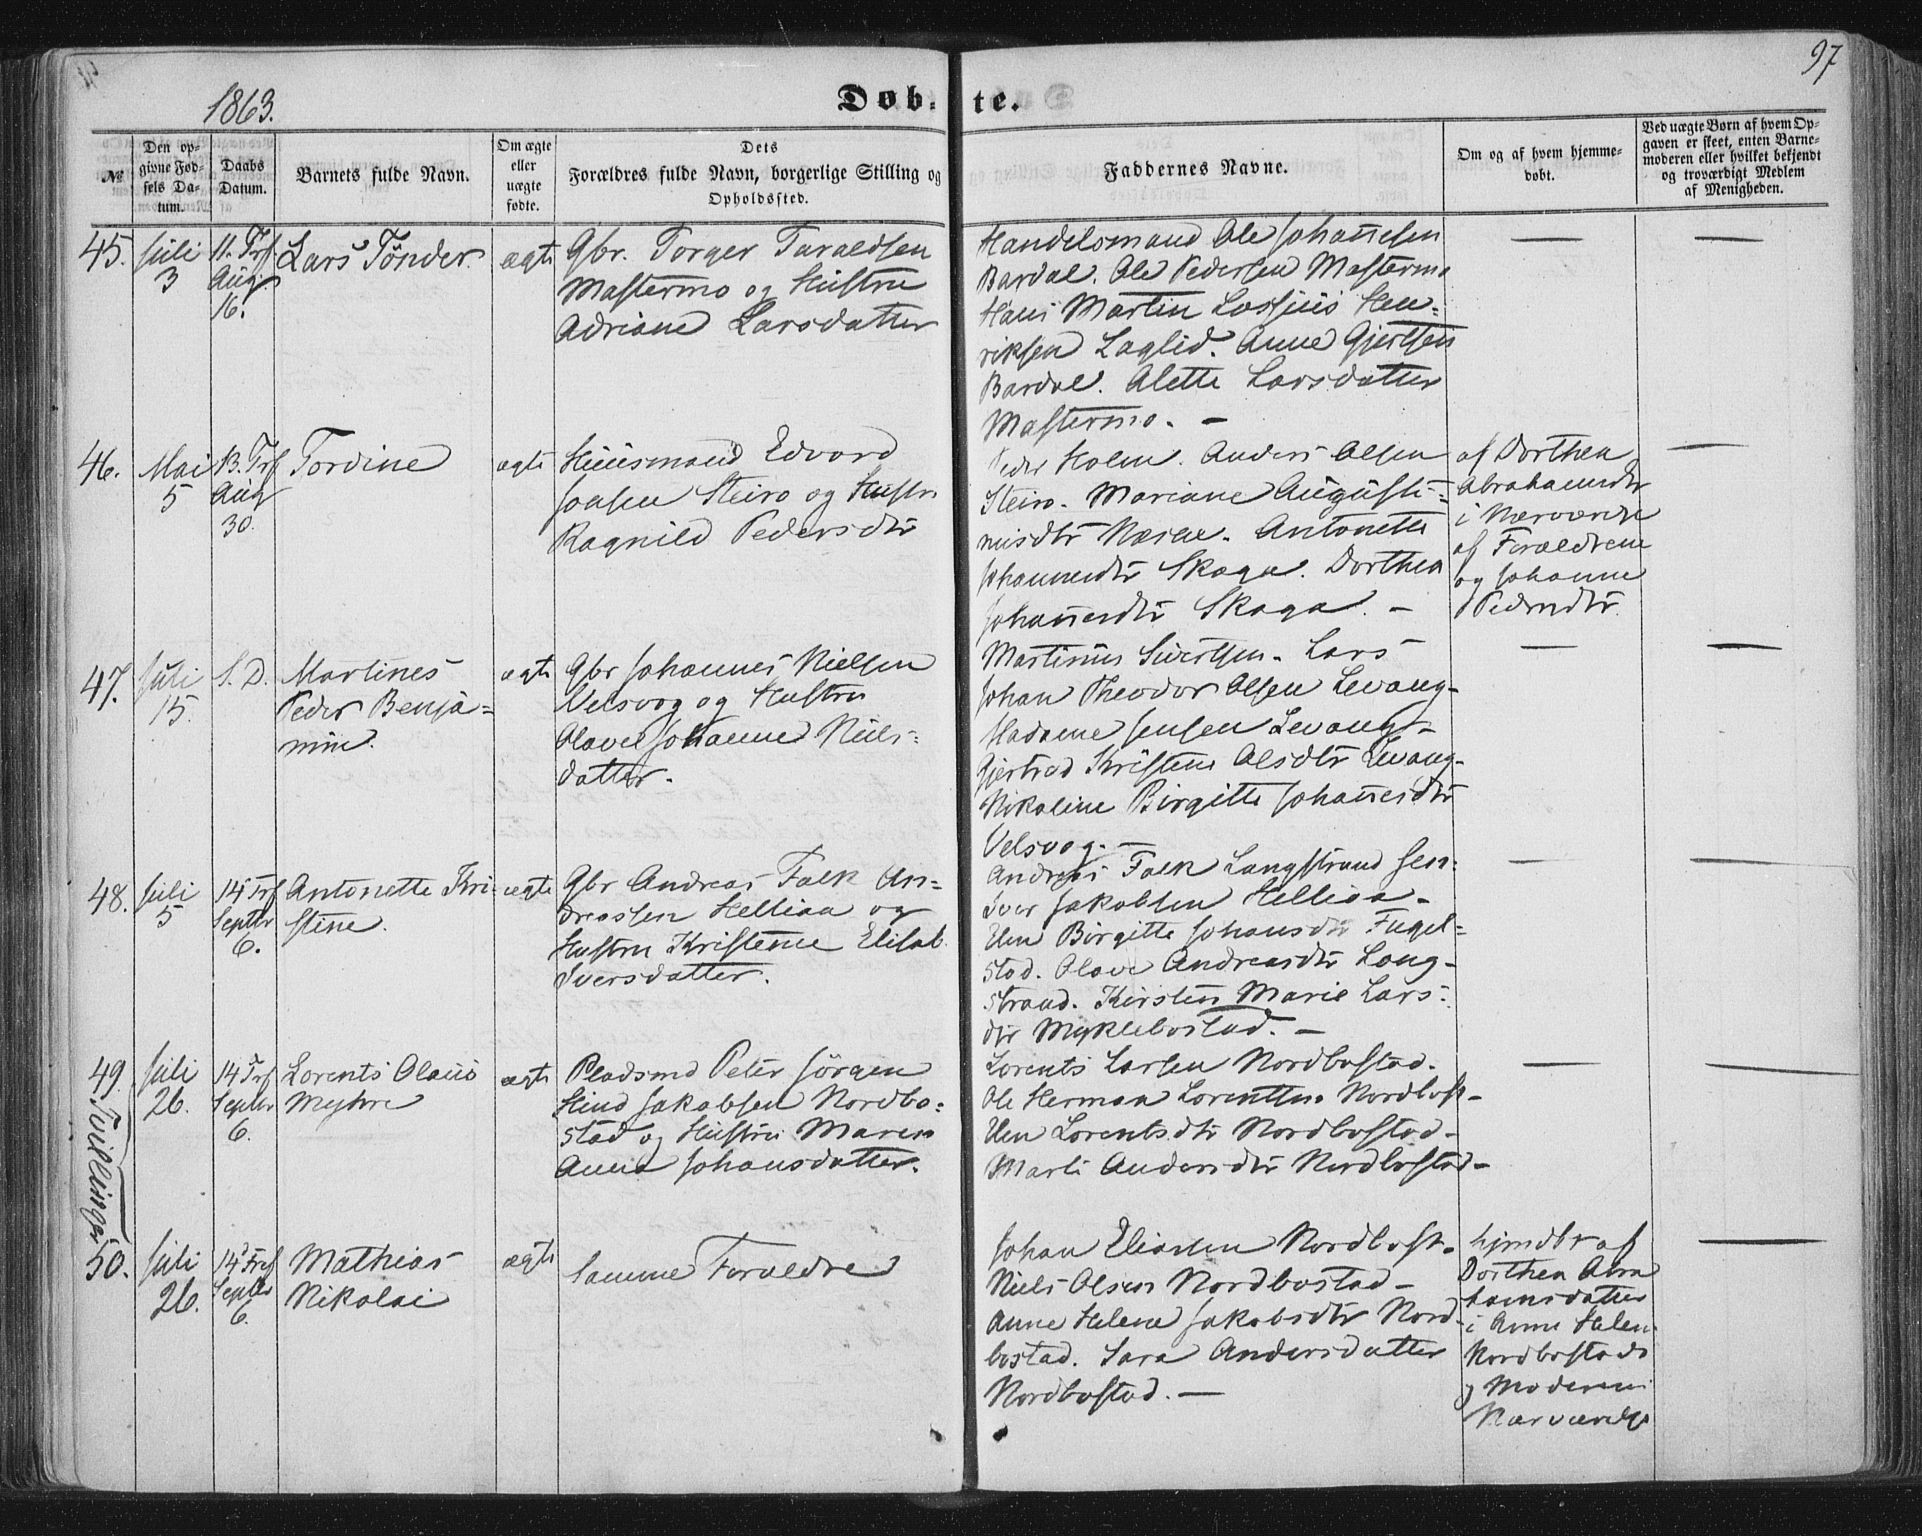 1863.
Døbte.
97
№
Den opgivne Fødsels Datum.
Daabs Datum.
Barnets fulde Navn.
Om ægte eller uægte fødte.
Dets Forældres fulde Navn, borgerlige Stilling og Opholdssted.
Faddernes Navne.
Om og af hvem hjemmedøbt.
Ved uægte Børn af hvem Opgaven er skeet, enten Barnemoderen eller hvilket bekjendt og troværdigt Medlem af Menigheden.
45.
Juli
3
11. Trf.
Aug
16.
Lars Tønder
ægte
Gbr. Torger Taraldsen
Mastermo og Hustru
Adriane Larsdatter
Handelsmand Ole Johannesen
Bardal. Ole Pedersen Mastermo
Hans Martin Lossius Hen-
riksen Laglid. Anne Gjertsen
Bardal. Alette Larsdatter
Mastermo. –
—
—
46.
Mai
5
13. Trf
Aug
30.
Tordine
ægte
Huusmand Edvard
Jonsen Steiro og Hustru
Ragnild Pedersdtr
Peder Holm. Anders Olsen
Steiro. Mariane Augusti-
nusdtr Næsne. Antonette
Johannesdtr Skaga. Dorthea
Johannesdtr Skaga. –
af Dorthea
Abrahamsdtr
i Nærværelse
af Forældrene
og Johanne
Pedersdtr.
—
47.
Juli
15.
S. D.
Martines
Peder Benja-
min.
ægte
Gbr Johannes Nielsen
Velsvog og Hustru
Olave Johanne Niels-
datter.
Martinus Sivertsen. Lars
Johan Theodor Olsen Levang-
Madame Jensen Levang-
Gjertrud Kristine Olsdtr Levang-
Nikoline Birgitte Johannesdtr
Velsvog. –
—
—
48.
Juli
5
14 Trf
Septbr
6.
Antonette Kri-
stine.
ægte
Gbr Andreas Falk An-
dreassen Hellian og
Hustru Kristenne Elisab.
Iversdatter.
Andreas Falk Langstrand Sen:
Iver Jakobsen Hellian-
Elen Birgitte Johansdtr Fugel-
stad. Olave Andreasdtr Lang-
strand. Kirsten Marie Lars-
dtr Myklebostad. –
—
—
49.
Juli
26.
14 Trf
Septbr
6.
Lorents Olaus
Myhre
ægte
Pladsmd Peter Jørgen
Hind Jakobsen Nordbo-
stad og Hustru Maren
Anna Johansdatter.
Lorents Larsen Nordbostad.
Ole Herman Lorentsen Nordbost-
Elen Lorentsdtr Nordbostad-
Marti Andersdtr Nordbostad-
—
—
Tvillinger
50.
Juli
26.
14 Tref
Septbr
6.
Mathias
Nikolai
ægte
Samme Forældre
Johan Eliasen Nordbost-
Niels Olsen Nordbostad-
Anne Helene Jakobsdtr Nord-
bostad. Sara Andersdatter
Nordbostad. –
hjmdbt af
Dorthea Abra
hamsdatter
i Anne Helen
Nordbostads
og Moderens
Nærværelse
—